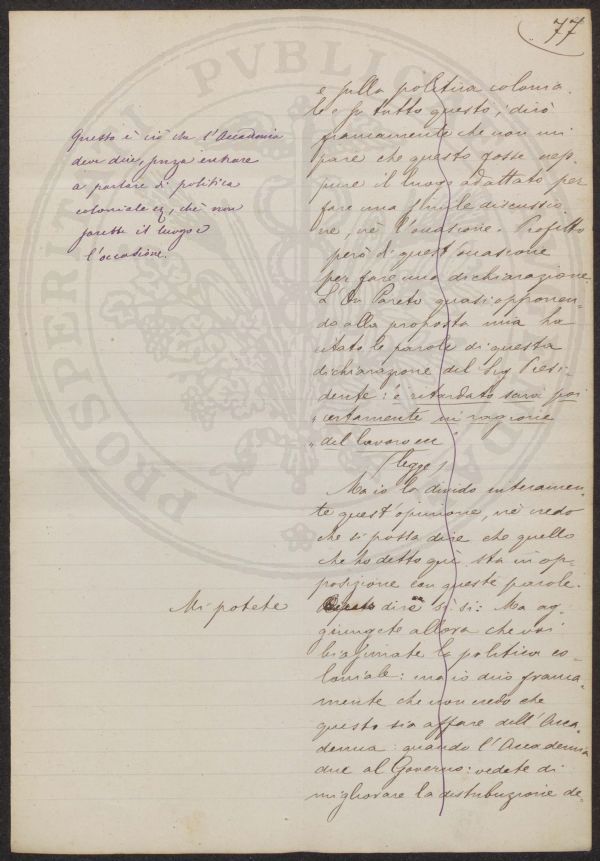 77
e sulla politica colonia-
le e su tutto questo, dirò
francamente che non mi
pare che questo fosse nep-
pure il luogo adattato per
fare una simile discussio-
ne, nè l'occasione. Profitto
però di quest'occasione
per fare una dichiarazione.
L'On Pareto quasi opponen-
do alla proposta mia ha
citato le parole di questa
dichiarazione del Sig Presi-
dente: è ritardato sarà poi
"certamente in ragione
"del lavoro ecc"
(legge)
Ma io la divido interamen-
te quest'opinione, nè credo
che si possa dire che quello
che ho detto quì sta in op-
posizione con queste parole.
dire sì si: Ma ag-
giungete allora che voi
biasimate la politica co-
loniale: ma io dico franca-
mente che non credo che
questo sia affare dell'Acca-
demia: quando l'Accademia
dice al Governo: vedete di
migliorare la distribuzione de-
Questo è ciò che l'Accademia
deve dire, senza entrare
a parlare di politica
coloniale chè non
sarebbe il luogo e
l'occasione.
Mi potete
PROSPERITATI PVBLICAE AVGENDAE